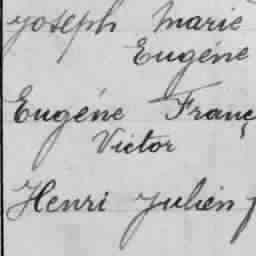 Joseph Marie
Eugéne
Eugéne Franç
Victor
Henri Julien